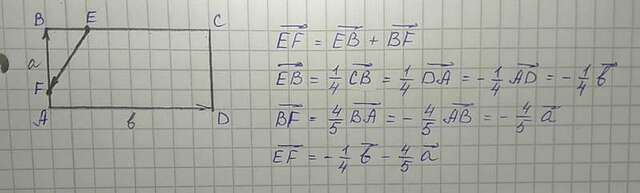 B E C
a
F
A D
b
$\overrightarrow{EF} = \overrightarrow{EB} + \overrightarrow{BF}$
$\overrightarrow{EB} = \frac{1}{4} \overrightarrow{CB} = \frac{1}{4} \overrightarrow{DA} = -\frac{1}{4} \overrightarrow{AD} = -\frac{1}{4} \overrightarrow{b}$
$\overrightarrow{BF} = \frac{4}{5} \overrightarrow{BA} = -\frac{4}{5} \overrightarrow{AB} = -\frac{4}{5} \overrightarrow{a}$
$\overrightarrow{EF} = -\frac{1}{4} \overrightarrow{b} - \frac{4}{5} \overrightarrow{a}$